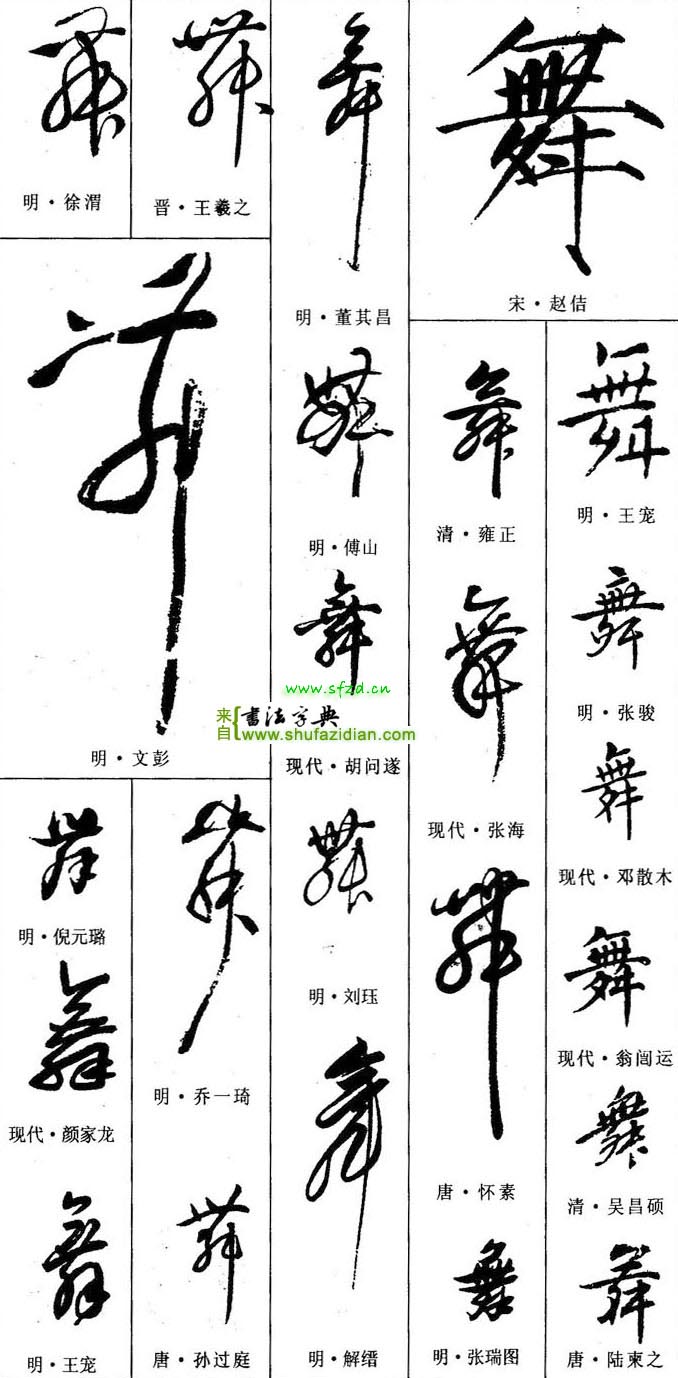 舞
明·徐渭
舞
晋·王羲之
舞
明·董其昌
舞
宋·赵佶
舞
明·文彭
舞
明·傅山
舞
清·雍正
舞
明·王宠
舞
www.sfzd.cn
来自{書法字典
www.shufazidian.com
现代·胡问遂
舞
现代·张海
舞
明·张骏
舞
现代·邓散木
舞
明·倪元璐
舞
明·乔一琦
舞
明·刘珏
舞
唐·怀素
舞
现代·翁闿运
舞
现代·颜家龙
舞
明·解缙
舞
清·吴昌硕
舞
明·王宠
舞
唐·孙过庭
舞
明·张瑞图
舞
唐·陆柬之